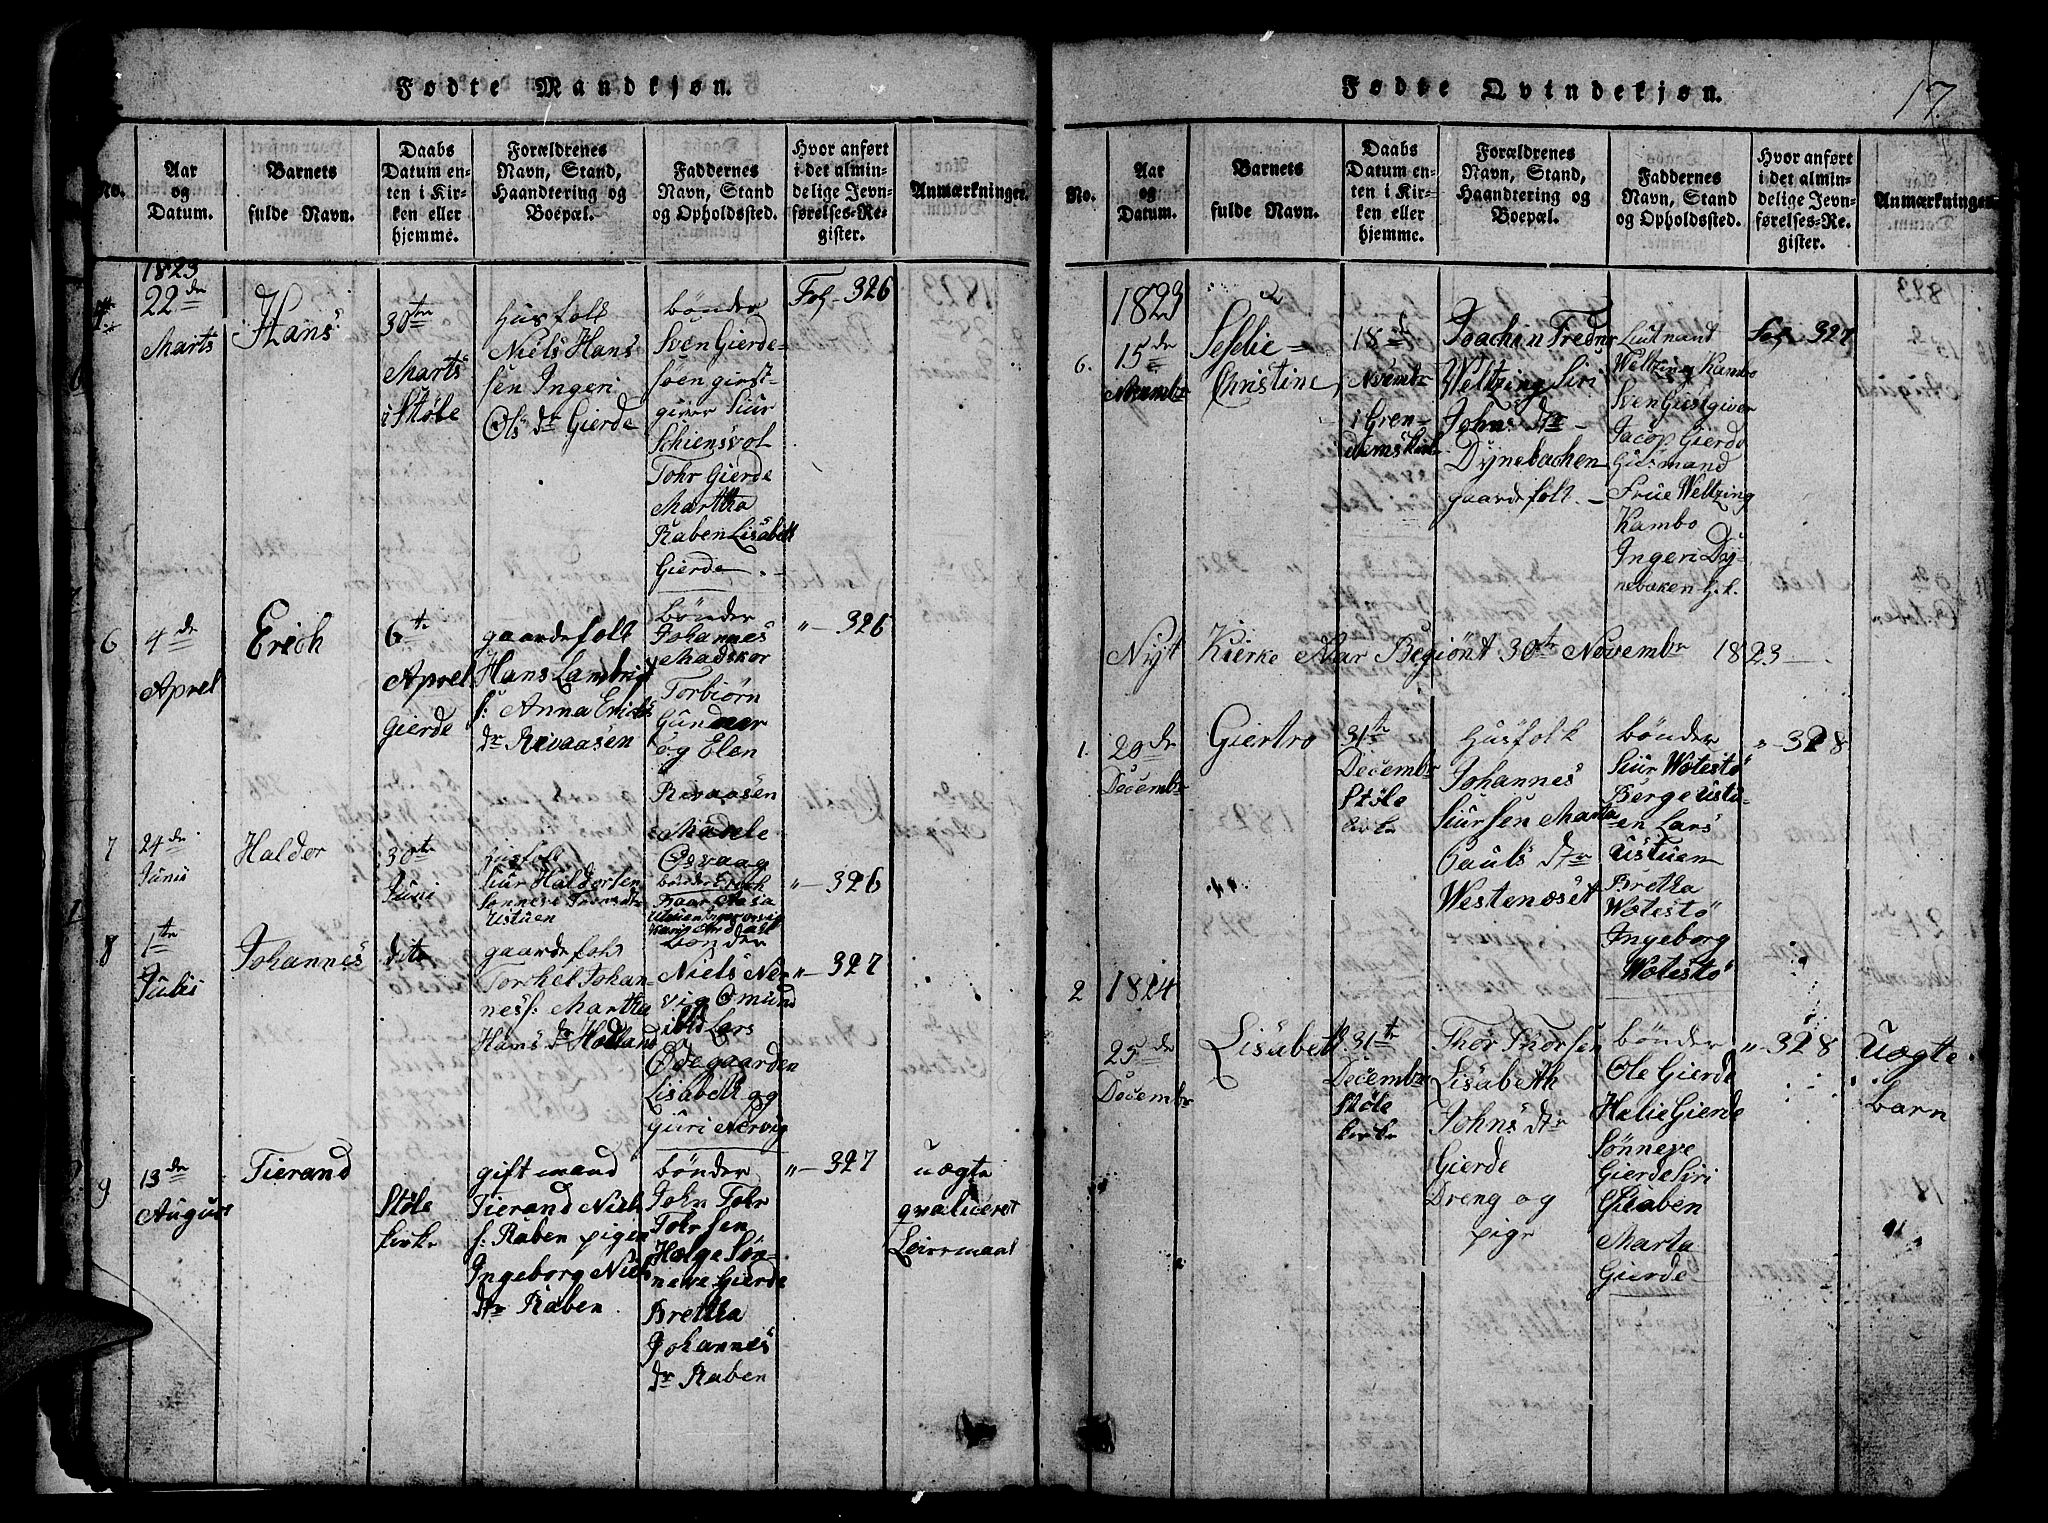 Fødte Mandkjøn.
No.
Aar
og
Datum.
Barnets
fulde Navn.
Daabs
Datum en-
ten i Kir-
ken eller
hjemme.
Forældrenes
Navn, Stand,
Haandtering og
Boepæl.
Faddernes
Navn, Stand
og Opholdssted.
Hvor anført
i det almin-
delige Jevn-
førelses-Re-
gister.
Anmærkninger.
1823
22de
Marts
Hans
30te
Marts
i Støle
Husfolk
Niels Hans
sen Ingeri
Ols dr Gierde
bønder
Sven Gierde-
giver Siur
Tohr Gierde
Martha
Raben Lisabeth
Gierde
Fol 326
6
4de
Aprel
Erich
6te
Aprel
Gierde
gaardefolk
Hans Lambrigt
s: Anna Erichs
dr Revaasen
bønder
Johannes
Madskor
Torbiørn
Gundner
og Elen
Revaasen
" 326
7
24de
Junii
Haldor
30te
Juni
Husfolk
Siur Haldorsen
Ustuen
Madele
Osvaag
bønder
" 326
8
1te
Julii
Johannes
dito
gaardefolk
Torkel Johan-
nes s: Martha
Hans dr Holland
bønder
Niels Ner
vig Omund
Lars
Ødegaarden
Lisabeth og
Guri Nervig
" 327
9
13de
August
Tierand
Støle
kirke
gift mand
Tierand Niels
s: Raben pigen
Ingeborg Niels
dtr Raben
bønder
John Tohr
Tohrsen
Helge Søn-
neve Gierde
Bretha
Johannes
dr Raben
" 327
uægte
qvaliceret
Leiermaal
Fødte Qvindekjøn.
17.
No.
Aar
og
Datum.
Barnets
fulde Navn.
Daabs
Datum en-
ten i Kir-
ken eller
hjemme.
Forældrenes
Navn, Stand,
Haandtering og
Boepæl.
Faddernes
Navn, Stand
og Opholdssted.
Hvor anført
i det almin-
delige Jevn-
førelses-Re-
gister.
Anmærkninger.
1823
6.
15de
Novembr
Sesselie
Christine
18de
Novembr
i Gren-
Joachin Fredr
Weltzing Siri
Johns dtr
Dynebachen
gaardefolk
Liutnand
Weltzing Kambo
Sven Giestgiver
Jacop Gierde
Husmand
Frue Weltzing
Kambo
Ingeri Dy-
nebaken H.k.
Fol 327
Nyt Kierke Aar Begiønt 30te Novembr 1823
1.
20de
Decembr
Giertro
31te
Decembr
Støle
kirke
Husfolk
Johannes
Siursen Marta
Pauls dtr
Westenæset
bønder
Siur Wetestø
Berge Ustu-
en Lars
Ustuen
Bretha
Wetestø
Ingeborg
Wetestø
" 328
2
1824
25de
Decembr
Lisabeth
31te
Decembr
Støle
kirke
Thor Thorsen
Lisabeth
Johns dtr
Gierde
Dreng og
pige
bønder
Ole Gierde
Helie Gierde
Sønneve
Gierde Siri
Marta
Gierde
" 328
Uægte
barn